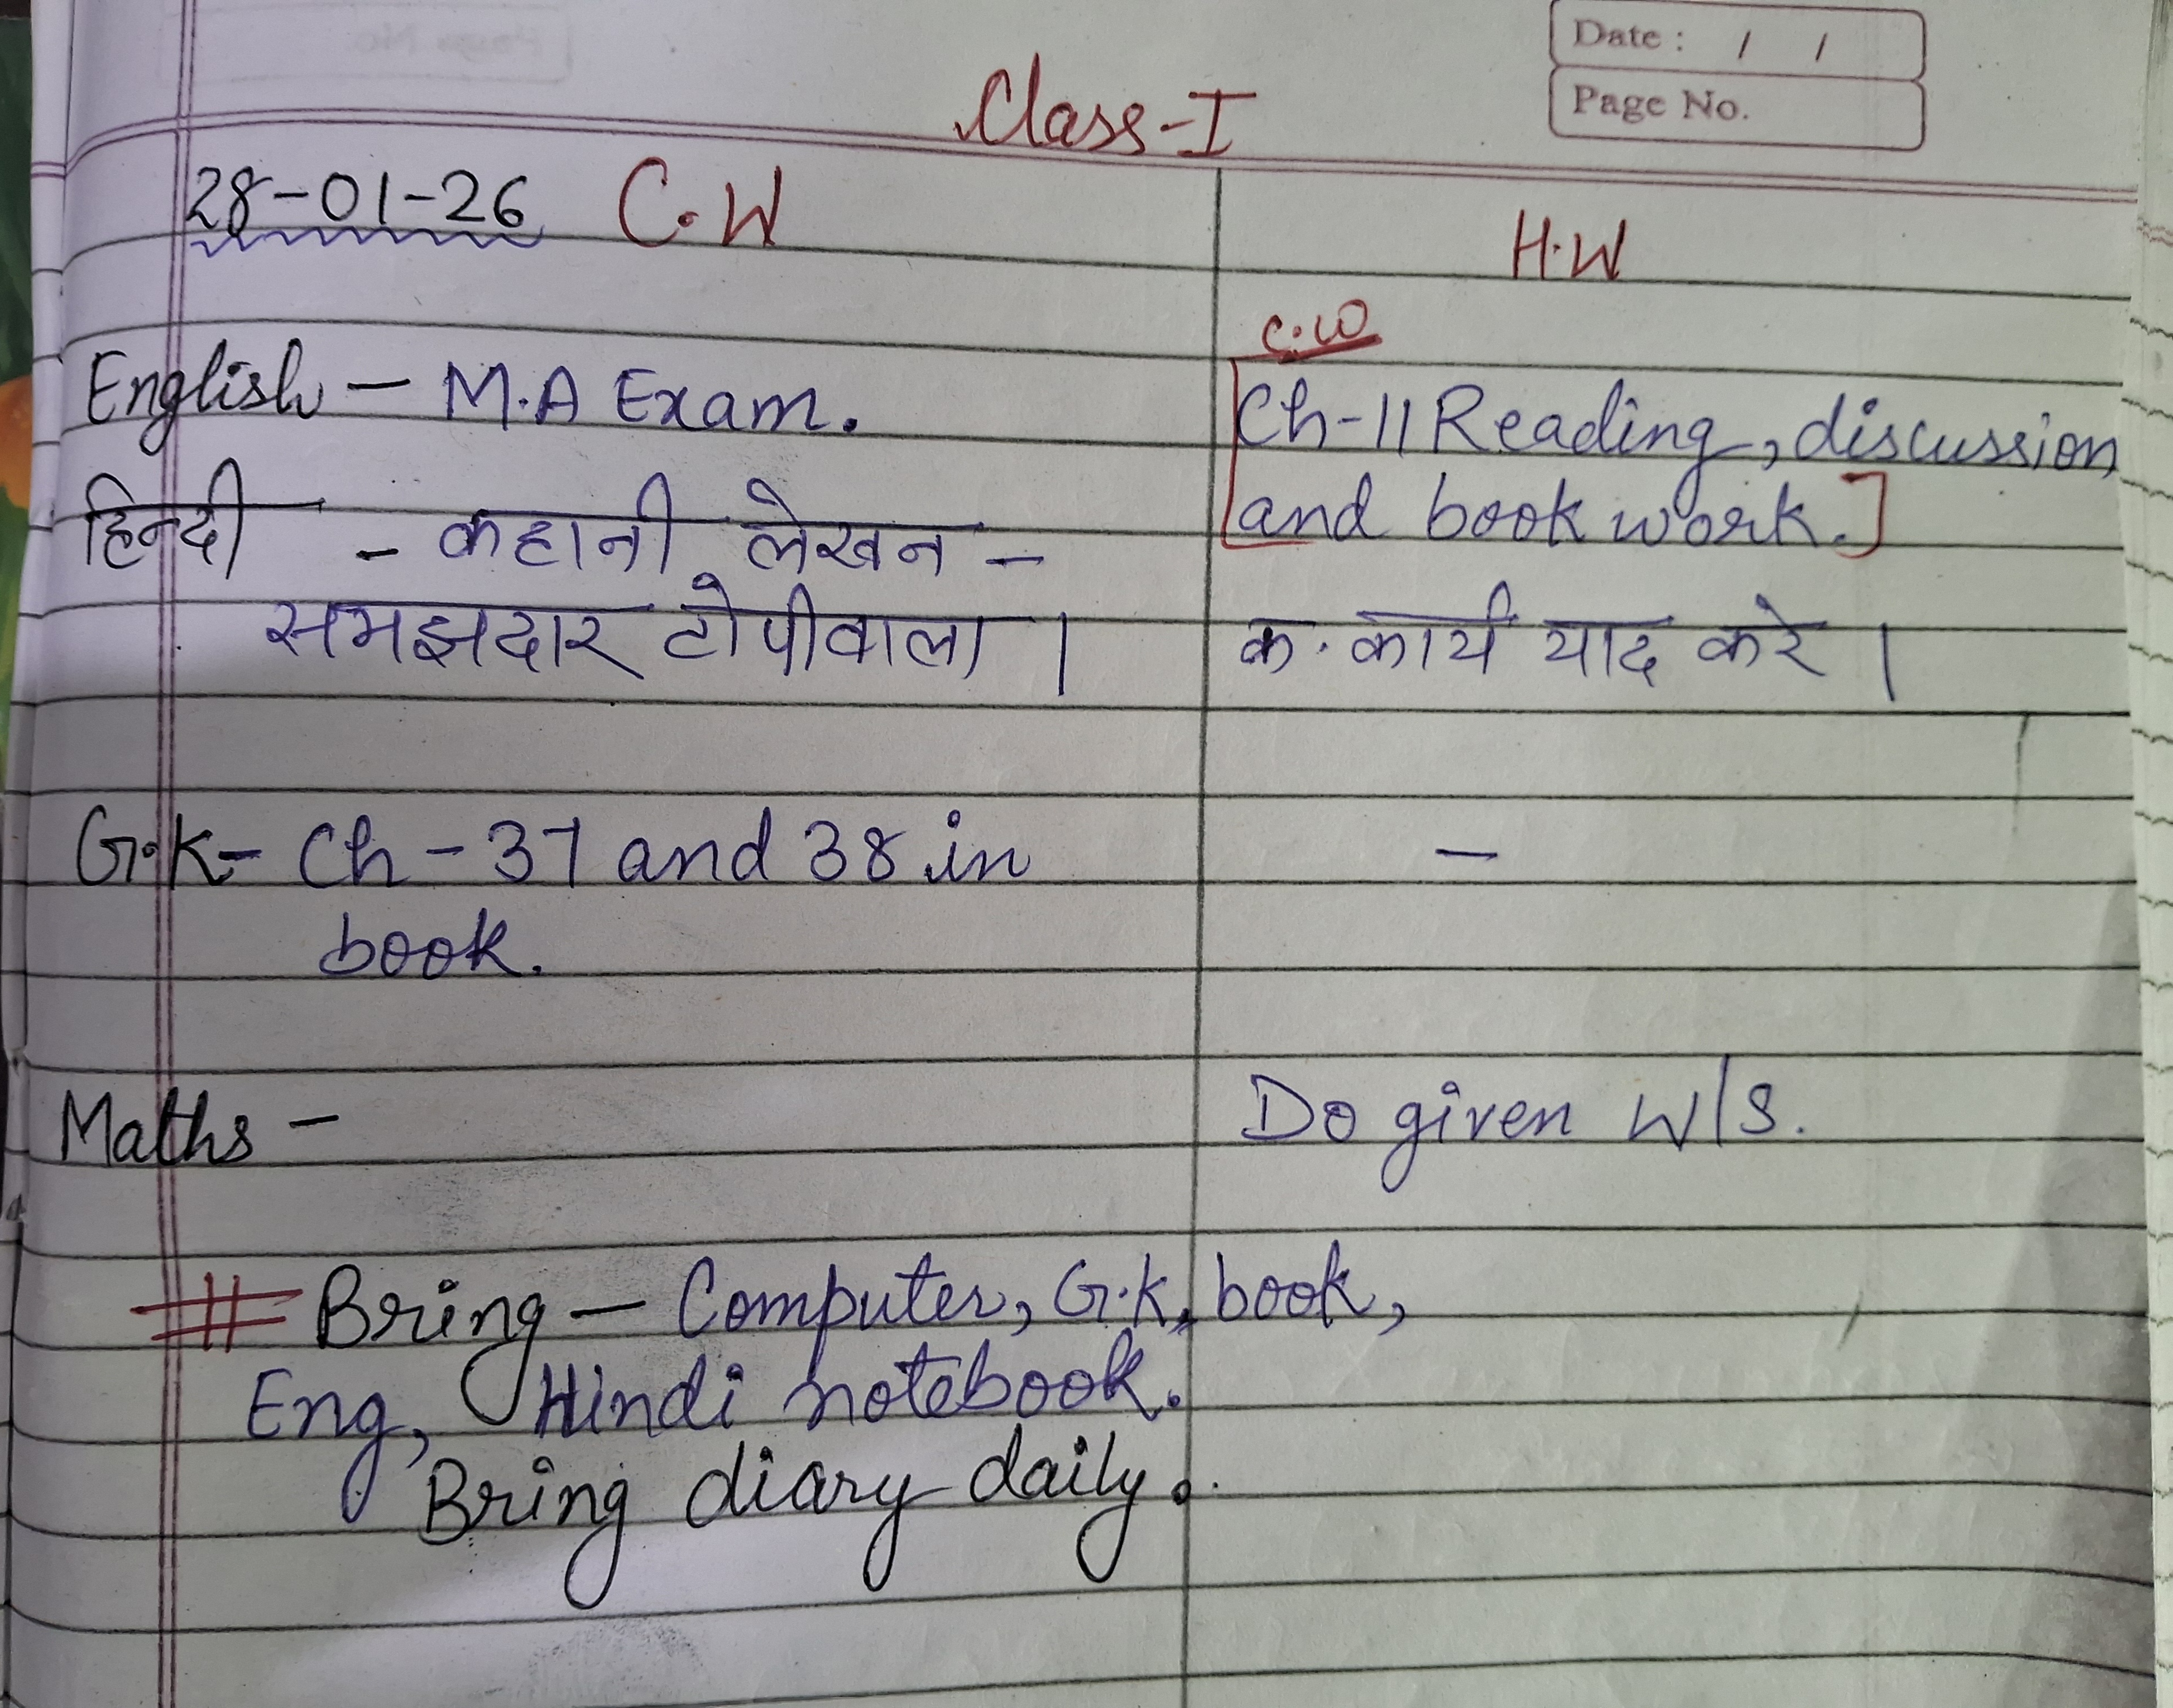 Date : / /
Page No.
Class-I
28-01-26 C.W
H.W
English - M.A Exam.
C.W
Ch-11 Reading, discussion
and book work.]
हिन्दी - कहानी लेखन -
समझदार टोपीवाला ।
क. कार्य याद करे ।
G.K- Ch - 37 and 38 in
book.
-
Maths -
Do given W/S.
# Bring - Computer, G.K, book,
Eng, Hindi notebook.
Bring diary daily.